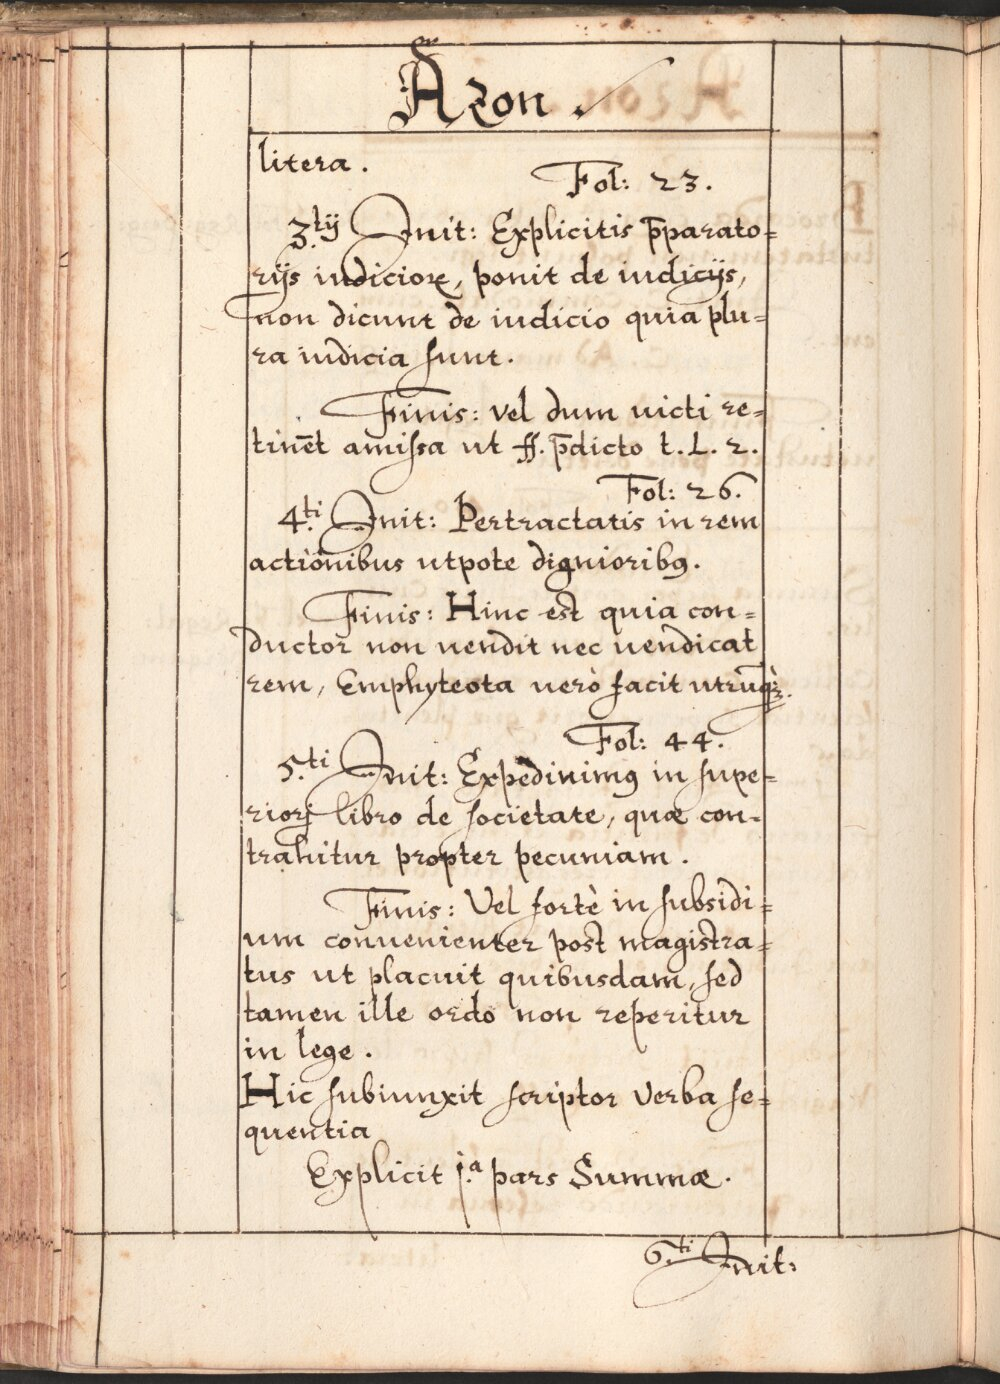 Azon.
litera.
Fol: 23.
3.tij Init: Explicitis p̄parato=
rijs iudicioꝝ, ponit de iudicijs,
non dicunt de iudicio quia plu=
ra iudicia sunt.
Finis: vel dum uicti re=
tinēt amissa ut ff. p̄dicto t. L. 2.
Fol: 26.
4.ti Init: Pertractatis in rem
actionibus utpote dignioribꝯ.
Finis: Hinc est quia con=
ductor non uendit nec uendicat
rem, Emphyteota uerò facit utrūqꝫ.
Fol: 44.
5.ti Init: Expediuimꝯ in supe=
riorj libro de societate, quæ con=
trahitur propter pecuniam.
Finis: Vel fortè in subsidi=
um conuenienter post magistra=
tus ut placuit quibusdam, sed
tamen ille ordo non reperitur
in lege.
Hic subiunxit scriptor verba se=
quentia
Explicit j.a pars Summæ.
6.ti Init: